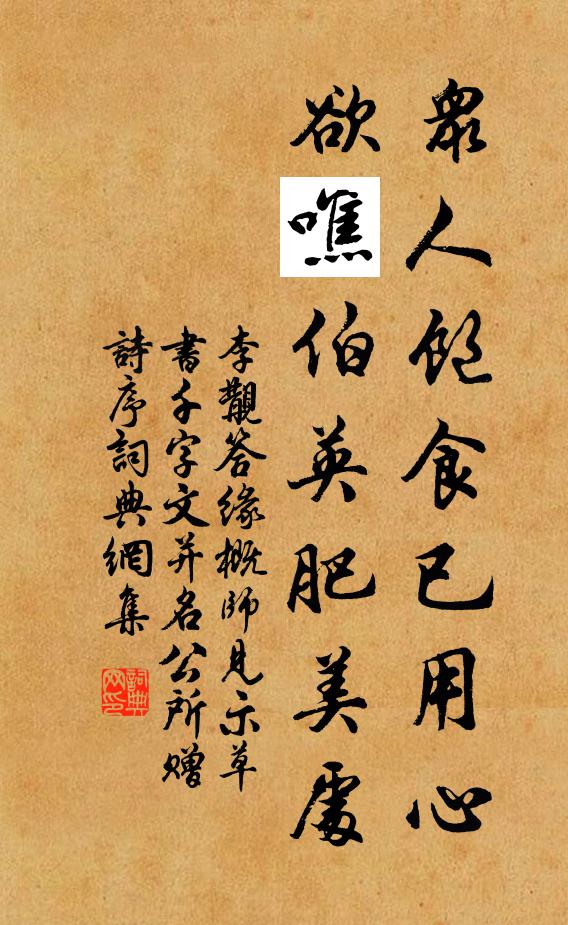 眾人飽食已用心
欲噍伯英肥美處
李覯答緣概師見示草
書千字文并名公所贈
詩序詞典網集
詞典網印